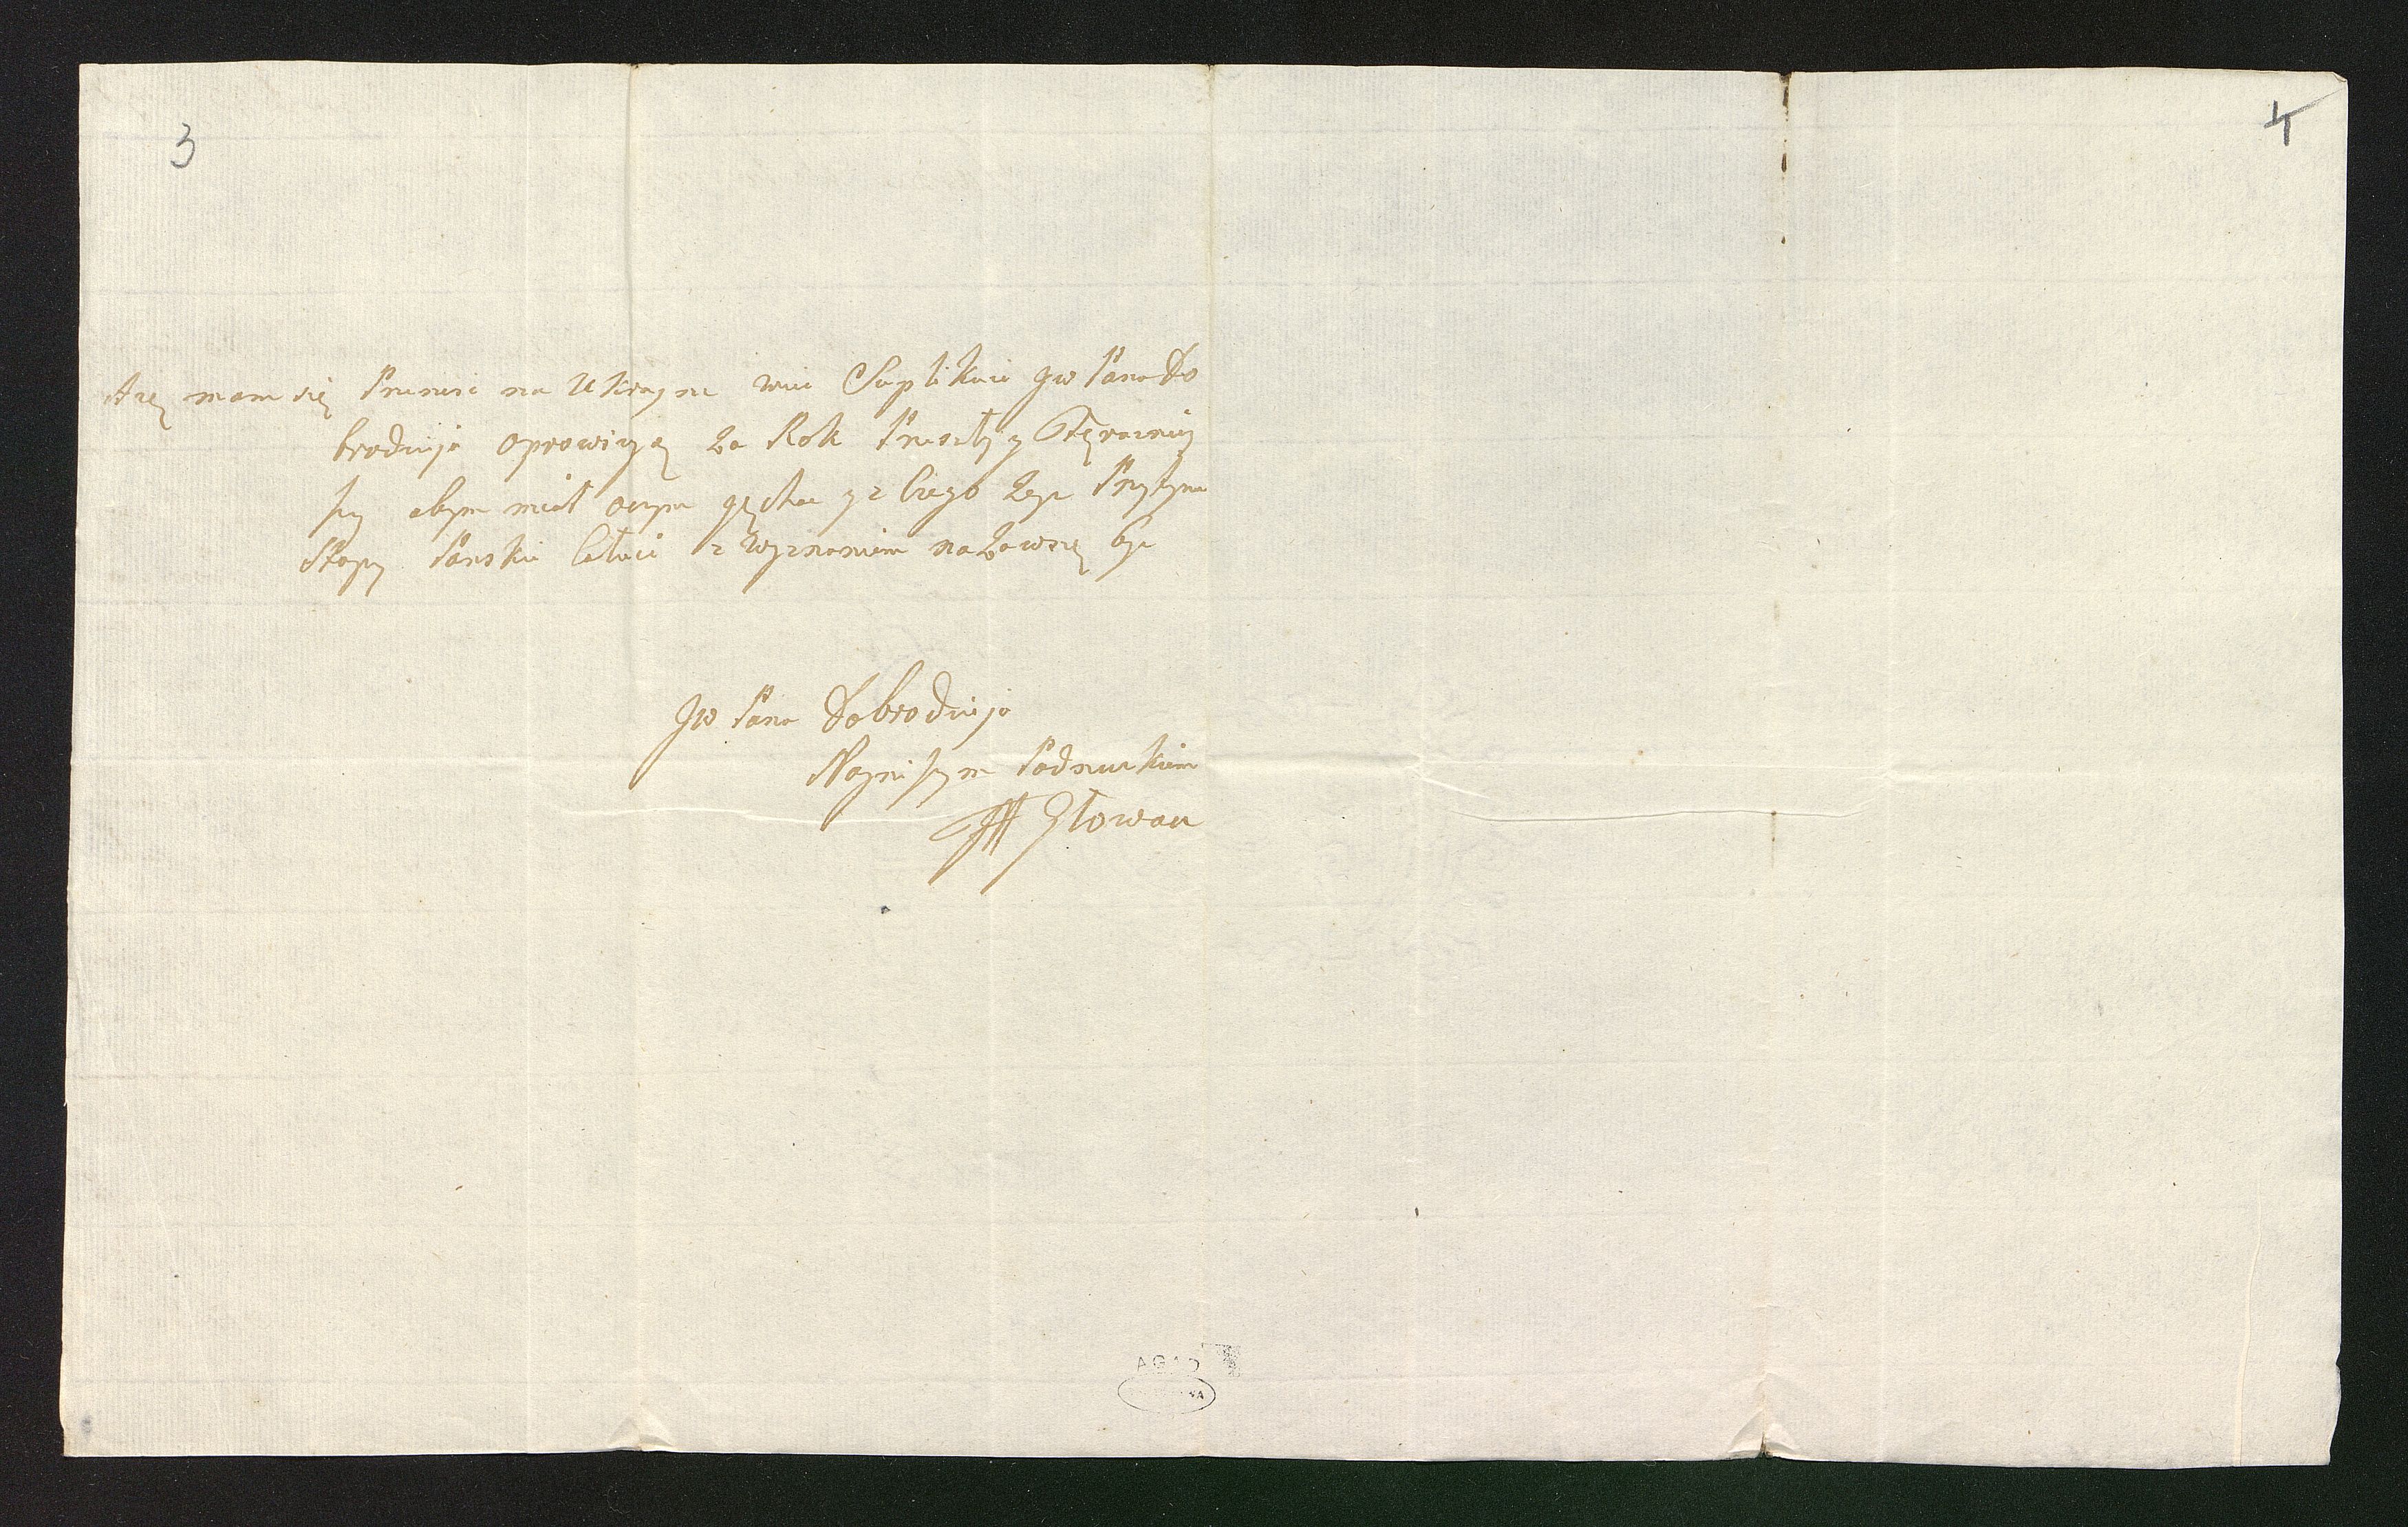 3
4
A zę mam się Prenesc na Ukrayne wiec Suplikuie JW Pana Do
brodzieja oprowizyą za Rok Przeszły y Terazniey
szy abym miał oczym y z Czego Zyc Przytym
Stopy Panskie Całuie z Wyznaniem na Zawszę byc
JW Pana Dobrodzieja
Nayniszym Podnuzkiem
Głowacz
AGAD